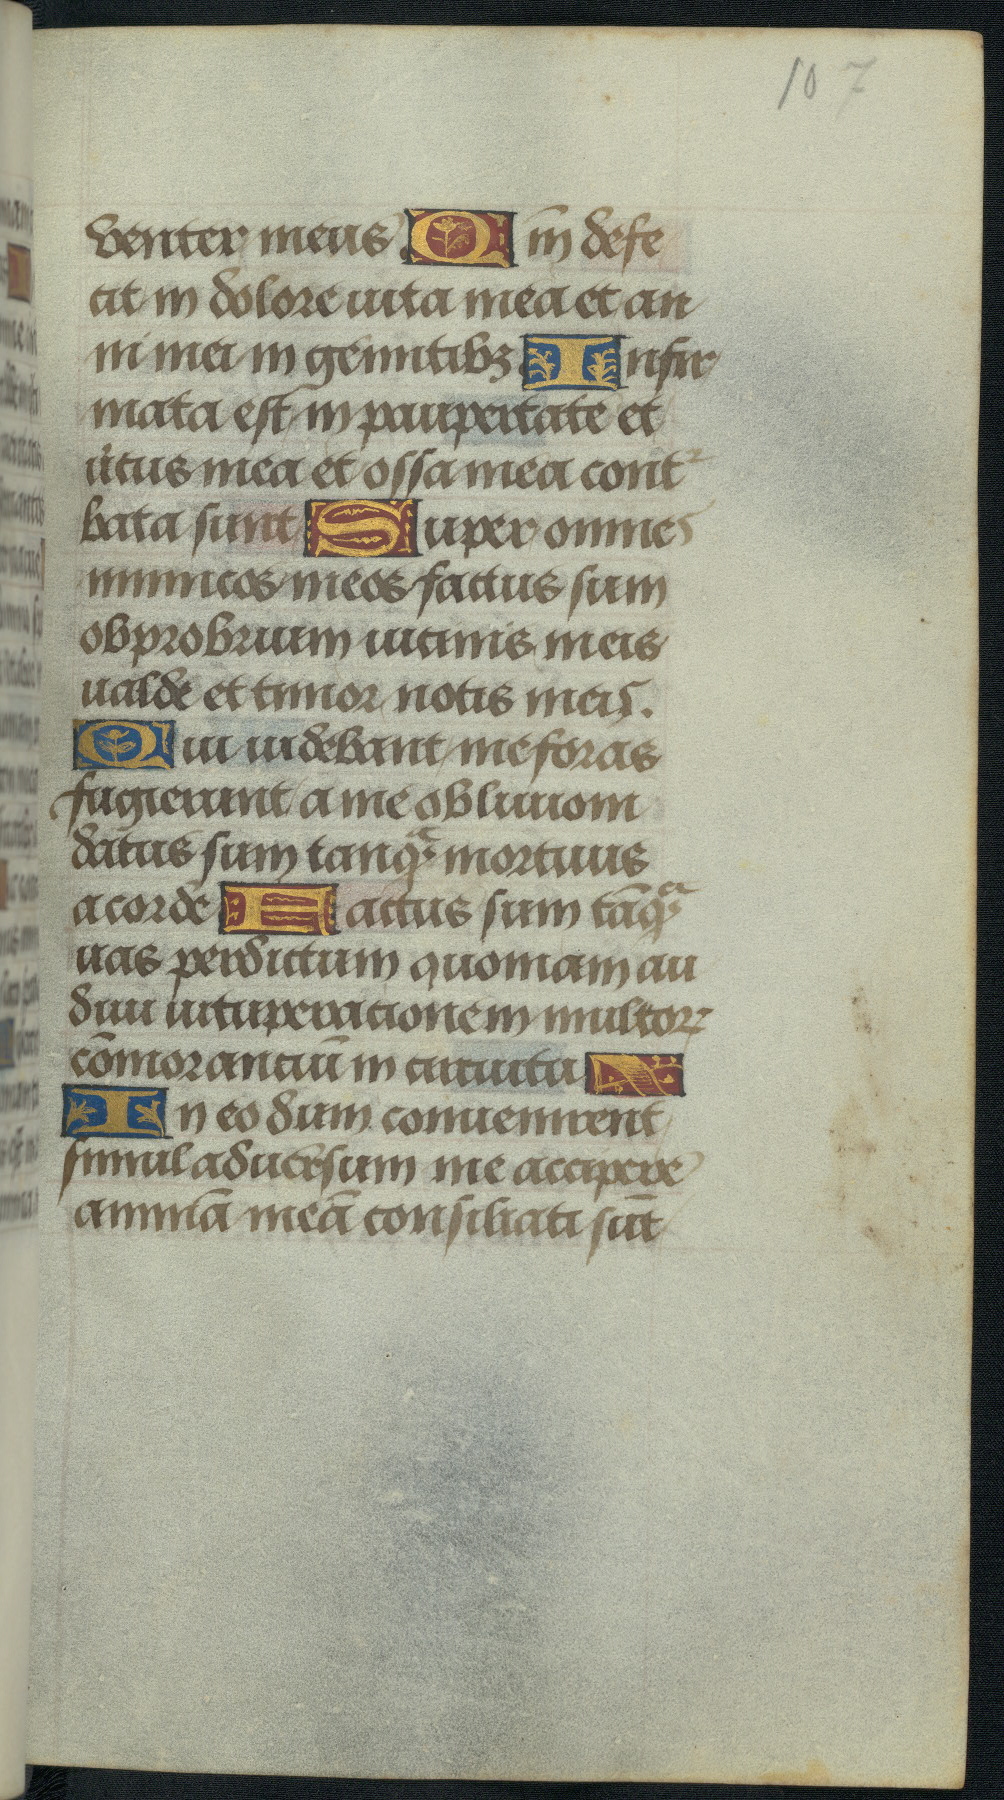 107
venter meus Qm̄ defe
cit in dolore uita mea et an
ni mei in gemitibꝫ Infir
mata est in paupertate et
u̇tus mea et ossa mea contᷣ
bata sunt Super omnes
inimicos meos factus sum
obprobrium uicinis meis
ualde et timor notis meis.
Qui uidebant me foras
fugierunt a me obliuioni
datus sum tanqᵃ mortuus
a corde Factus sum tāqᵃ
uas perdictum quoniam au
diui uituperacionem multoꝝ
cōmoranciū in circuitu
In eo dum conuenirent
simul aduersum me accipere
animā meā consiliati sūt